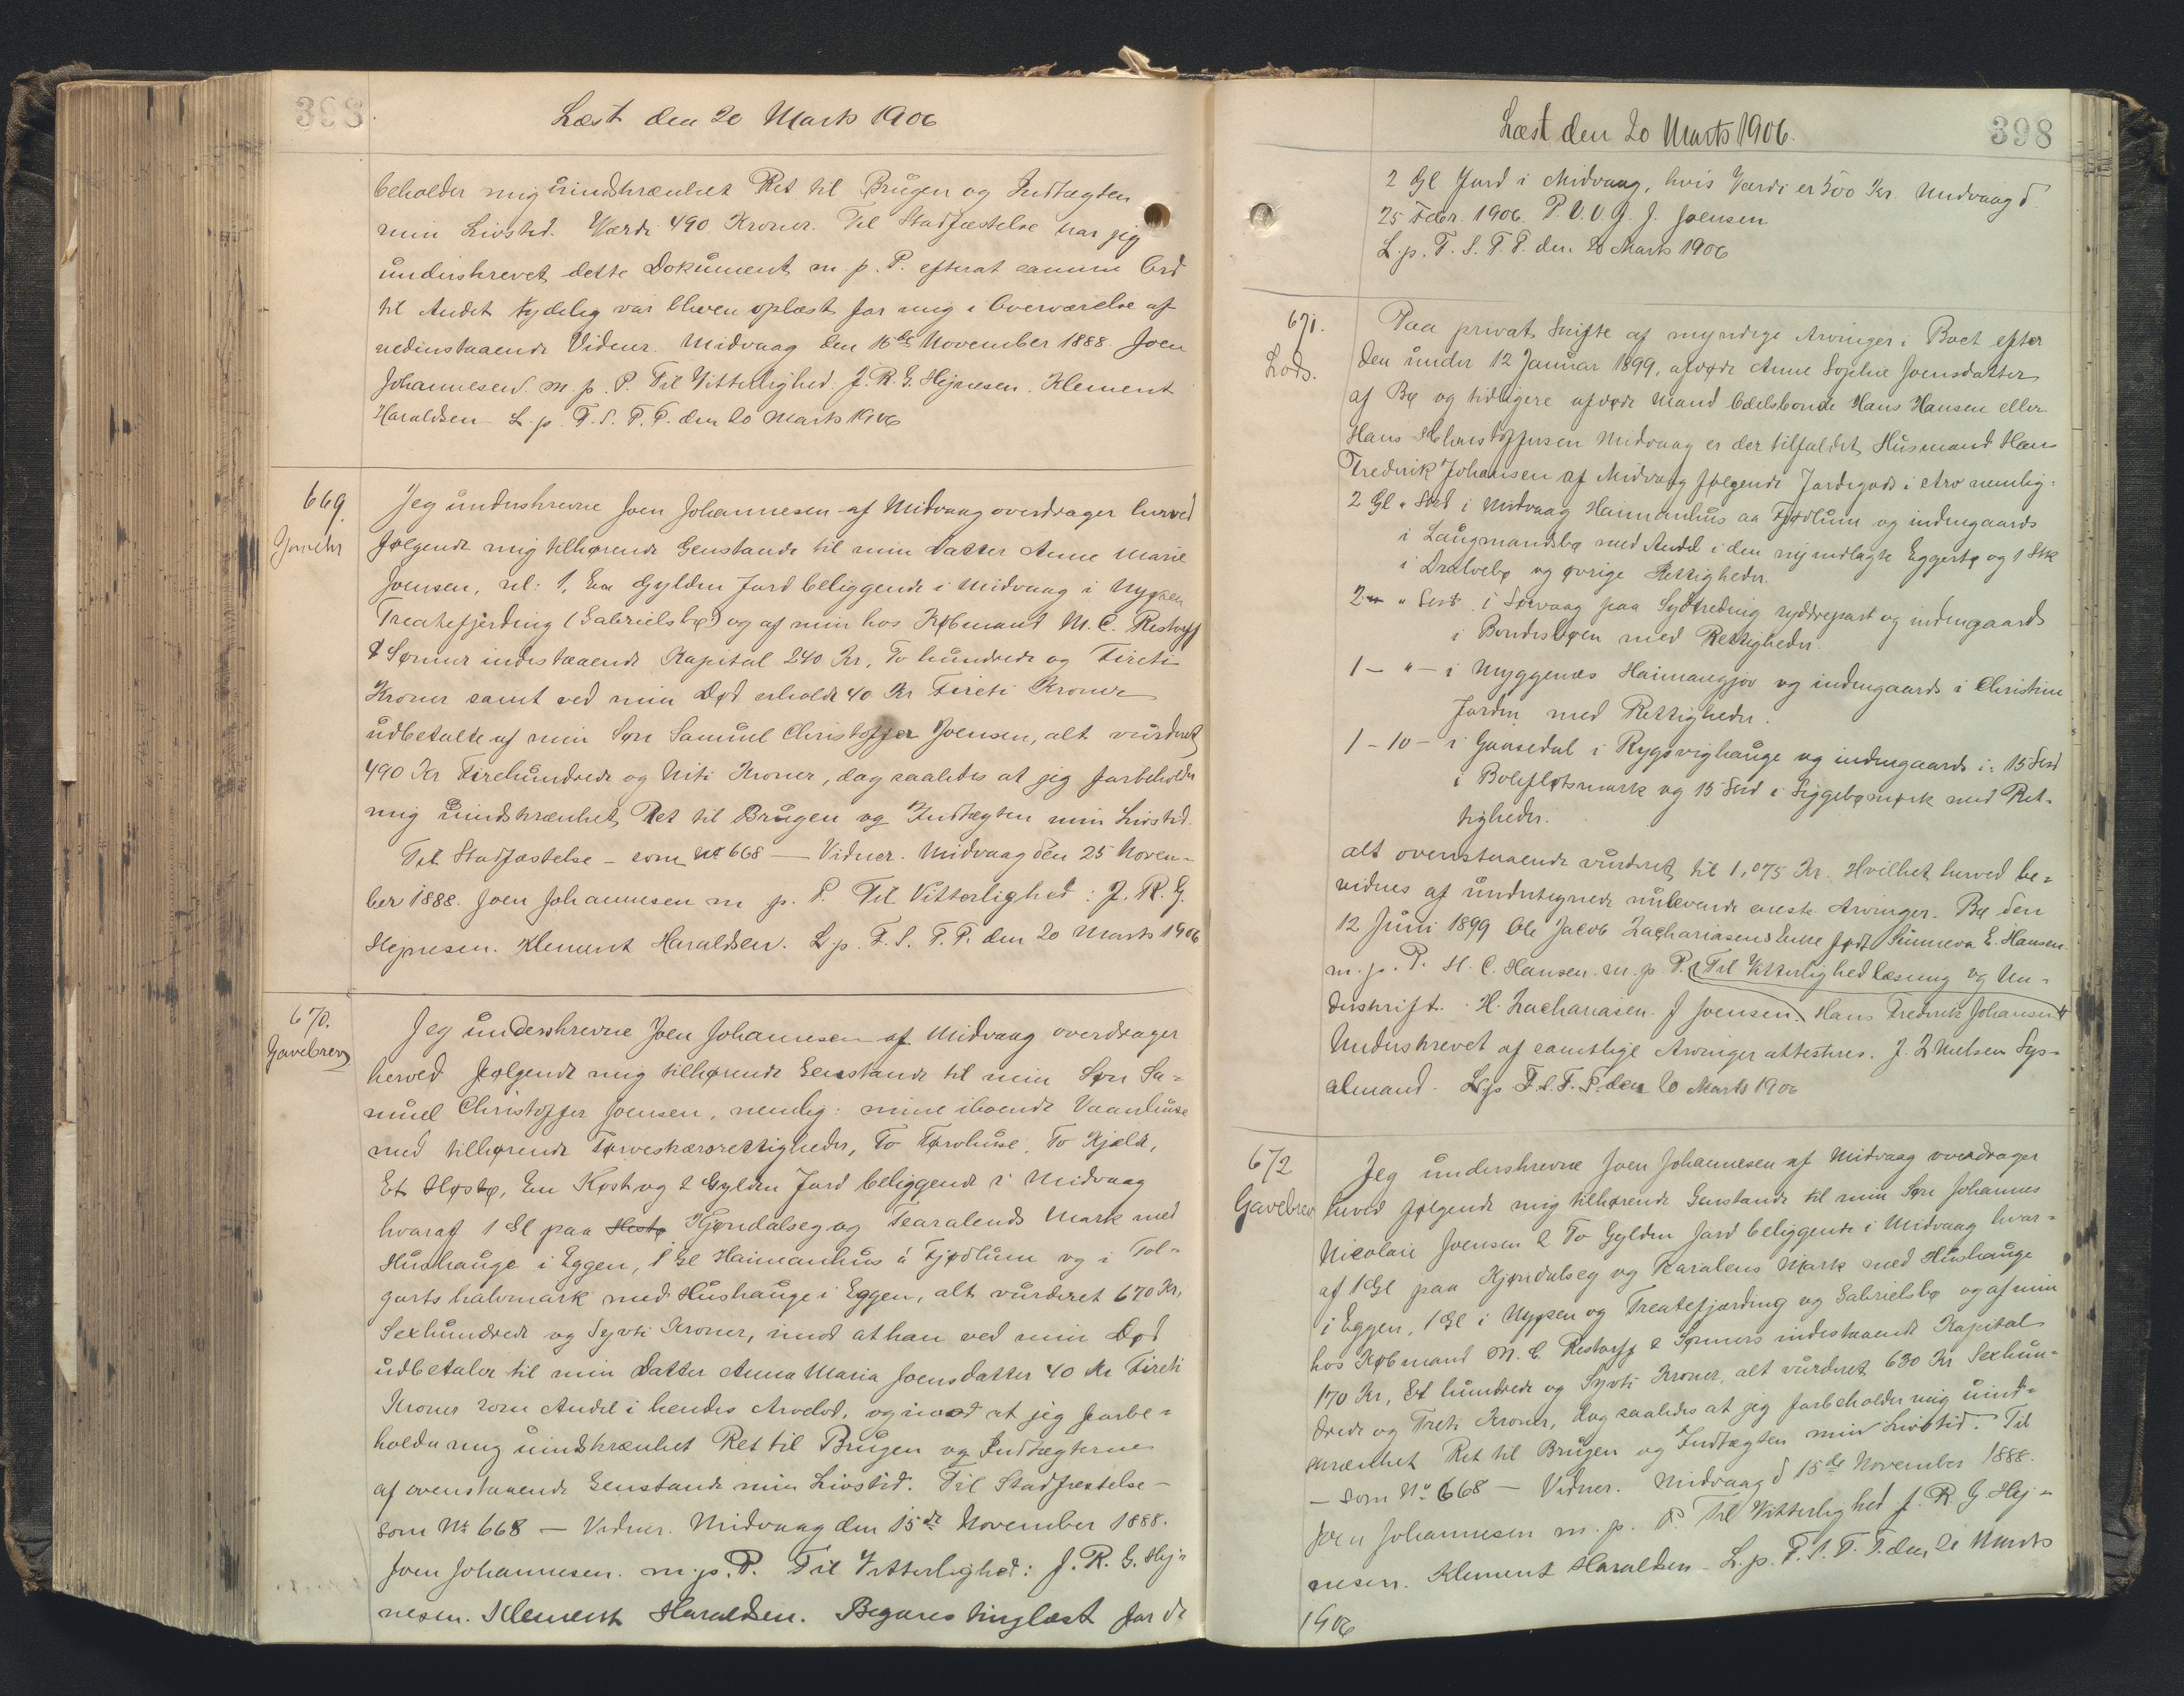 398
Læst den 20 Marts 1906
beholder mig uindskrænket Ret til Brugen og Indtægten
min Livstid. Værdi 490 Kroner. Til Stadfæstelse har jeg
underskrevet dette Dokument m. p. P. efterat samme Ord
til Andet tydelig var bleven oplæst for mig i Overværelse af
nedenstaaende Vidner. Midvaag den 15de November 1888. Joen
Johannesen m. p. P. Til Vitterlighed. J. R. G. Hejnesen. Klement
Haraldsen L. p. F. S. T. P. den 20 Marts 1906
669.
Jeg underskrevne Joen Johannesen af Midvaag overdrager herved
følgende mig tilhørende Genstande til min Datter Anne Marie
Joensen, nl: 1, En Gylden Jord beliggende i Midvaag i Nypen
Treatefjerding (Gabrielsbø) og af min hos Købmand M. C. Restorff
& Sønner indestaaende Kapital 240 Kr, To hundrede og Fireti
Kroner samt ved min Død erholde 40 Kr Fireti Kroner
udbetalte af min Søn Samuel Christoffer Joensen, alt vurderet
490 Kr Firehundrede og Niti Kroner, dog saaledes at jeg forbeholder
mig uindskrænket Ret til Brugen og Indtægten min Livstid.
Til Stadfæstelse – som No 668 — Vidner. Midvaag den 25 Noven-
ber 1888. Joen Johannesen m p. P. Til Vitterlighed: J. R. G.
Hejnesen. Klement Haraldsen. L. p. F. S. T. P. den 20 Marts 1906
670.
Gavebrev
Jeg underskrevne Joen Johannesen af Midvaag overdrager
herved følgende mig tilhørende Genstande til min Søn Sa-
muel Christoffer Joensen, nemlig: mine iboende Vaanhuse
med tilhørende Tørveskærsrettigheder, To Tørvhuse, To Kjeld,
Et Høstø, En Køst og 2 Gylden Jord beliggende i Midvaag
hvoraf 1 Gl paa Hestø Kjøndalseg og Tearalends Mark med
Hushauge i Eggen, 1 Gl Haimanhus á Fjødlum og i Tol-
garts halvmark med Hushauge i Eggen, alt vurderet 670 Kr,
Sexhundrede og Syvti Kroner, imod at han ved min Død
udbetaler til min Datter Anna Maria Joensdatter 40 Kr Fireti
Kroner som Andel i hendes Arvelod, og imod at jeg forbe-
holder mig uindskrænket Ret til Brugen og Indtægterne
af ovenstaaende Genstande min Livstid. Til Stadfæstelse –
som No 668 — Vidner. Midvaag den 15de November 1888.
Joen Johannesen. m. p. P. Til Vitterlighed: J. R. G. Hej-
nesen. Klement Haraldsen. Begæres tinglæst for de
Læst den 20 Marts 1906.
398
2 Gl Jord i Midvaag, hvis Værdi er 500 Kr. Midvaag d
25 Febr. 1906. P. V. V. G. J. Joensen
L. p. F. S. T. P. den 20 Marts 1906
671.
Lods.
Paa privat Skifte af myndige Arvinger i Boet efter
den under 12 Januar 1899, afdøde Anne Sophie Joensdatter
af Bø og tidligere afdøde Mand Odelsbonde Hans Hansen eller
Hans Christoffersen Midvaag er der tilfaldet Husmand Hans
Frederik Johansen af Midvaag følgende Jordegods i Arv nemlig:
2 Gl " Skd i Midvaag Haimanhus aa Fjødlum og indengaards
i Laugmandsbø med Andel i den ny indlagte Eggertø og 1 Stk
i Dralvebø og øvrige Rettigheder.
2 " " Skd i Sørvaag paa Sydtreding nyddrepart og indengaards
i Bondesbøen med Rettigheder.
1 – " – i Myggenæs Haimangjov og indengaards i Christine
Jorden med Rettigheder.
1 – 10 – i Gaasedal i Rygsvighauge og indengaards i: 15 Skd
i Boleflotsmark og 15 Skd i Siggebønørk med Ret-
tigheder.
alt ovenstaaende vurderet til 1,075 Kr. Hvilket herved be-
vidnes af undertegnede nulevende eneste Arvinger. Bø den
12 Juni 1899 Ole Jacob Zachariasens Enke født Sunneva E. Hansen
m. p. P. H. C. Hansen. m. p. P. (Til Vitterlighed læsning og Un-
derskrift. H. Zachariasen. J Joensen. Hans Fredrik Johansen
Underskrevet af samtlige Arvinger attesteres. J. Z Nielsen Sys-
selmand. L. p. F. S. T. P. den 20 Marts 1906
672
Gavebrev
Jeg underskrevne Joen Johannesen af Midvaag overdrager
herved følgende mig tilhørende Genstande til min Søn Johannes
Nicolaie Joensen 2 To Gylden Jord beliggende i Midvaag hvor-
af 1 Gl paa Kjøndalseg og Tearalens Mark med Hushauge
i Eggen, 1 Gl i Nypen og Treatefjærding og Gabrielsbø og af min
hos Købmand M. C. Restorff & Sønners indestaaende Kapital
170 Kr, Et hundrede og Syvti Kroner, alt vurderet 630 Kr Sexhun-
drede og Treti Kroner, dog saaledes at jeg forbeholder mig uind-
skrænket Ret til Brugen og Indtægten min Livstid. Til
— som No 668 — Vidner. Midvaag d 15de November 1888.
Joen Johannesen m. p. P. Til Vitterlighed J. R. G. Hej-
nesen. Klement Haraldsen – L. p. F. S. T. P. den 20 Marts
1906